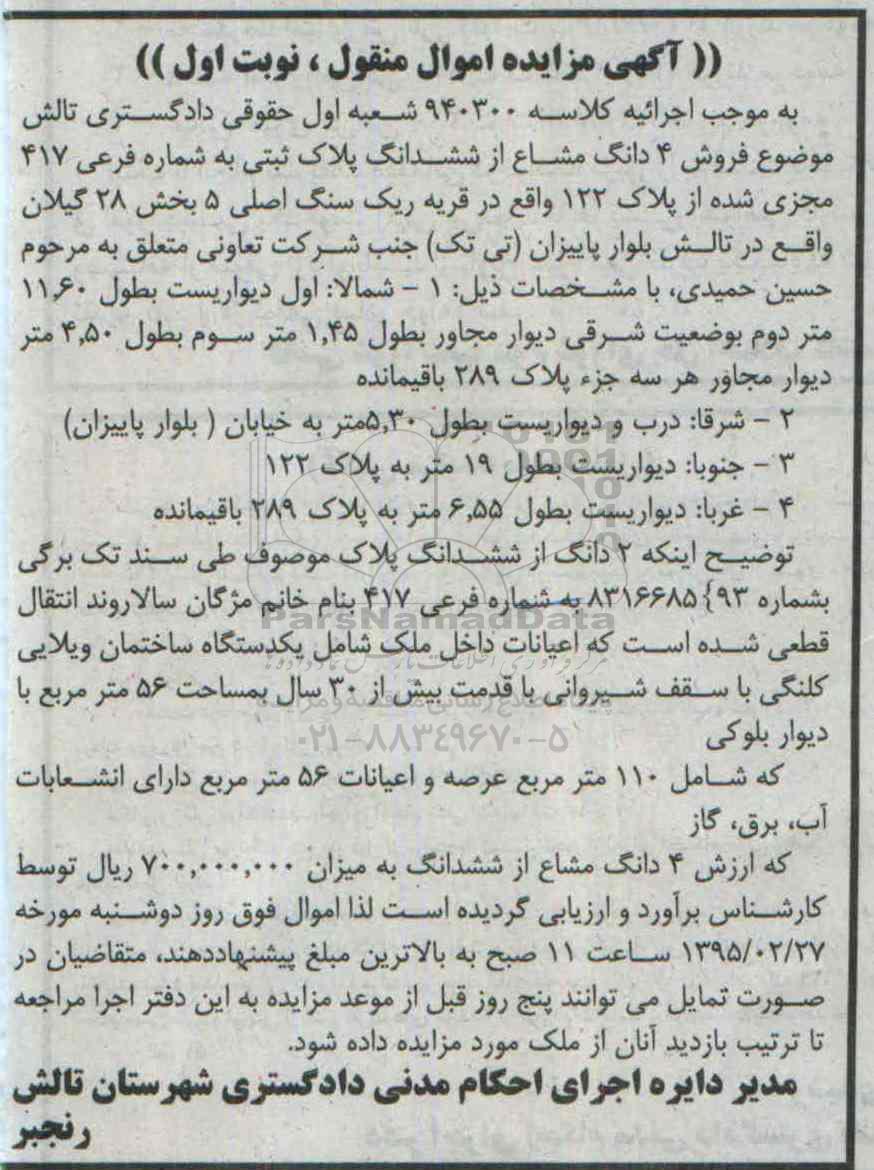 (( آگهی مزایده اموال منقول ، نوبت اول ))
به موجب اجرائیه کلاسه ۹۴۰۳۰۰ شعبه اول حقوقی دادگستری تالش
موضوع فروش ۴ دانگ مشاع از ششدانگ پلاک ثبتی به شماره فرعی ۴۱۷
مجزی شده از پلاک ۱۲۲ واقع در قریه ریک سنگ اصلی ۵ بخش ۲۸ گیلان
واقع در تالش بلوار پاییزان (تی تک) جنب شرکت تعاونی متعلق به مرحوم
حسین حمیدی، با مشخصات ذیل: ۱ - شمالا: اول دیواریست بطول ۱۱,۶۰
متر دوم بوضعیت شرقی دیوار مجاور بطول ۱,۴۵ متر سوم بطول ۴,۵۰ متر
دیوار مجاور هر سه جزء پلاک ۲۸۹ باقیمانده
۲ - شرقا: درب و دیواریست بطول ۵,۳۰متر به خیابان ( بلوار پاییزان)
۳ - جنوبا: دیواریست بطول ۱۹ متر به پلاک ۱۲۲
۴ - غربا: دیواریست بطول ۶,۵۵ متر به پلاک ۲۸۹ باقیمانده
توضیح اینکه ۲ دانگ از ششدانگ پلاک موصوف طی سند تک برگی
بشماره ۹۳{۸۳۱۶۶۸۵ به شماره فرعی ۴۱۷ بنام خانم مژگان سالاروند انتقال
ParsNamadData
قطعی شده است که اعیانات داخل ملک شامل یکدستگاه ساختمان ویلایی
کلنگی با سقف شیروانی با قدمت بیش از ۳۰ سال بمساحت ۵۶ متر مربع با
دیوار بلوکی
۰۲۱-۸۸۳۴۹۶۷۰-۵
که شامل ۱۱۰ متر مربع عرصه و اعیانات ۵۶ متر مربع دارای انشعابات
آب، برق، گاز
که ارزش ۴ دانگ مشاع از ششدانگ به میزان ۷۰۰,۰۰۰,۰۰۰ ریال توسط
کارشناس برآورد و ارزیابی گردیده است لذا اموال فوق روز دوشنبه مورخه
۱۳۹۵/۰۲/۲۷ ساعت ۱۱ صبح به بالاترین مبلغ پیشنهاددهند، متقاضیان در
صورت تمایل می توانند پنج روز قبل از موعد مزایده به این دفتر اجرا مراجعه
تا ترتیب بازدید آنان از ملک مورد مزایده داده شود.
مدیر دایره اجرای احکام مدنی دادگستری شهرستان تالش
رنجبر